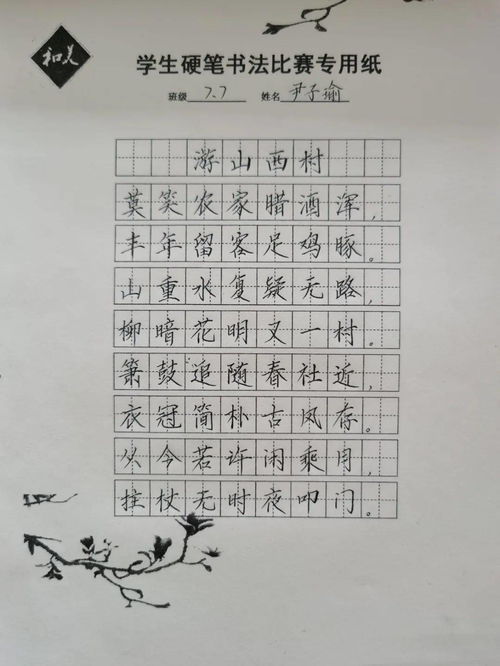 和美
学生硬笔书法比赛专用纸
班级 7.7 姓名 尹子瑜
游山西村
莫笑农家腊酒浑,
丰年留客足鸡豚。
山重水复疑无路,
柳暗花明又一村。
箫鼓追随春社近,
衣冠简朴古风存。
从今若许闲乘月,
拄杖无时夜叩门。